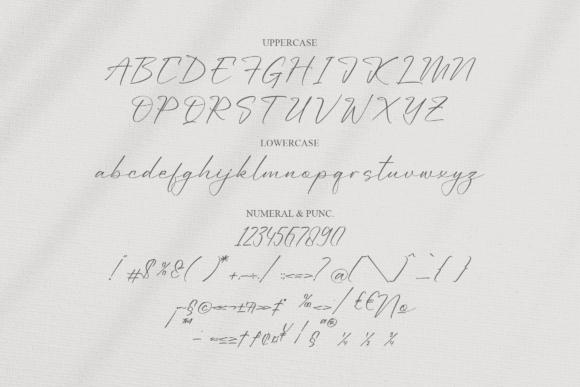 UPPERCASE
ABCDEFGHIJKLMN
OPQRSTUVWXYZ
LOWERCASE
abcdefghijklmnopqrstuvwxyz
NUMERAL & PUNC.
1234567890
! # $ % & ( ) * + , - . / : ; < = > ? @ [ \ ] ^ _ { }